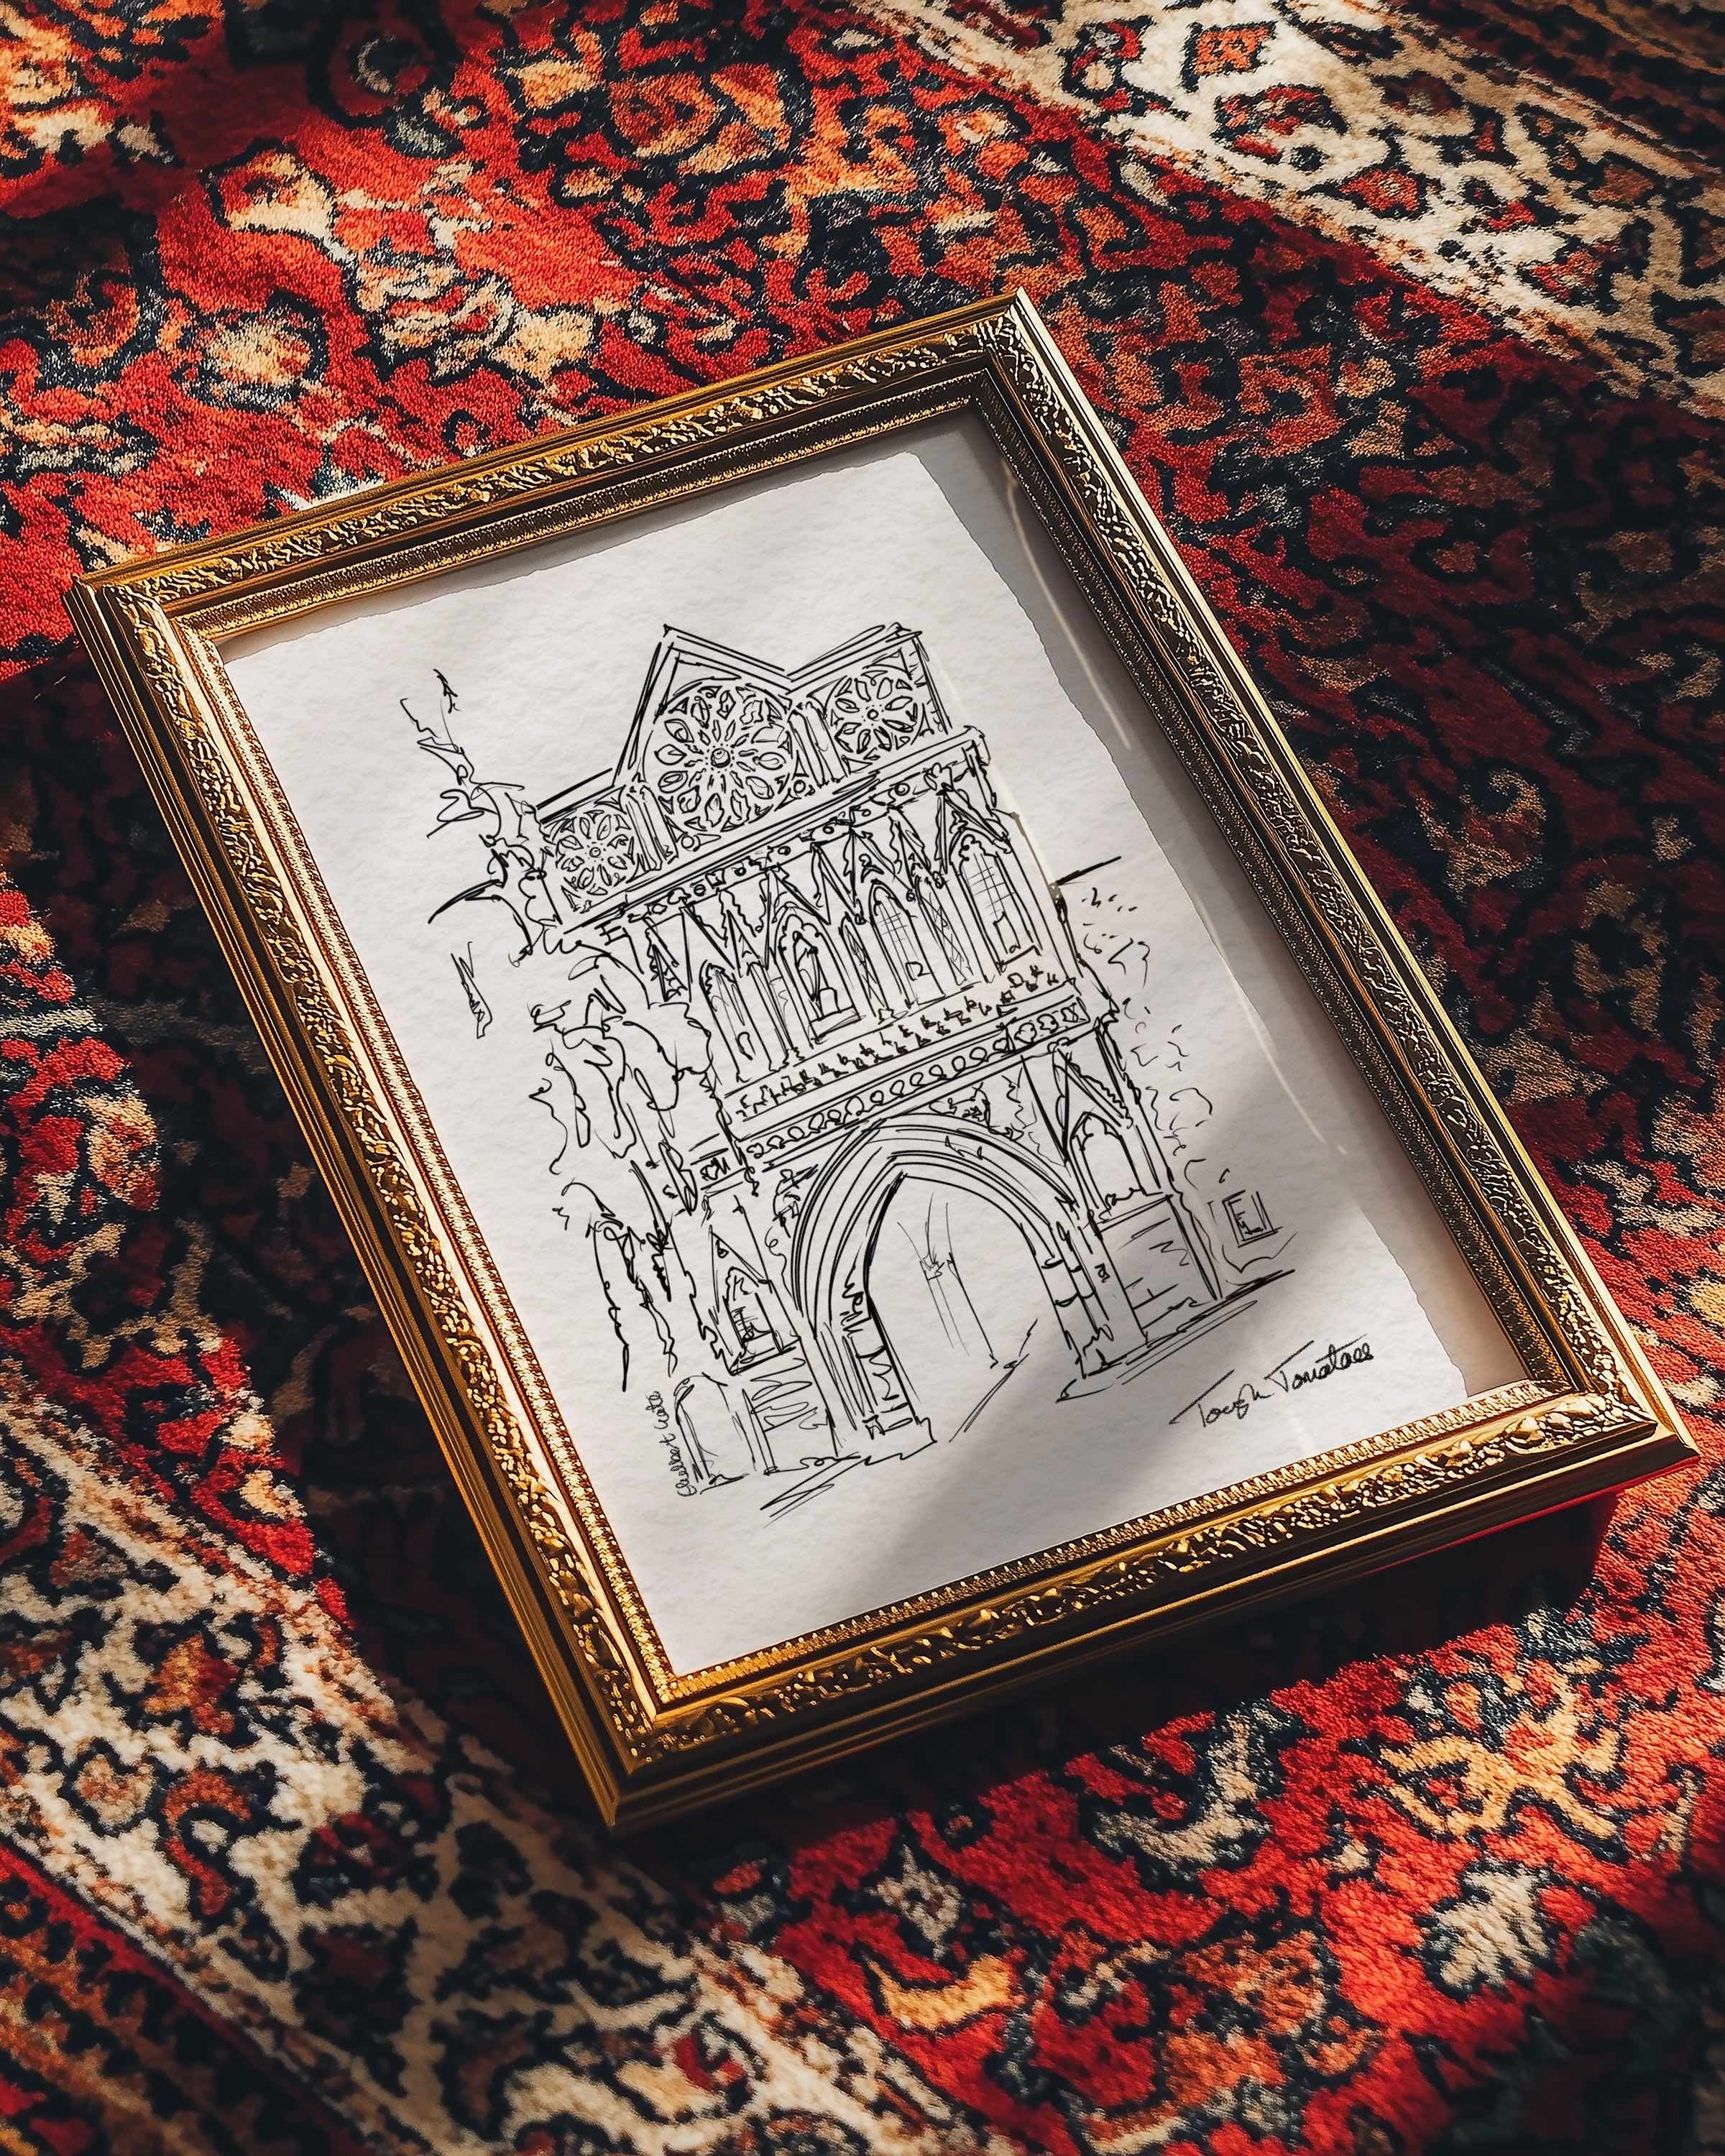 Ethelbert Gate
Tough Tomatoes